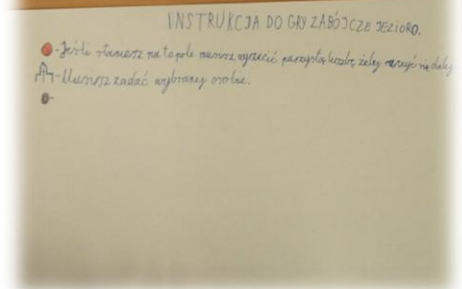 INSTRUKCJA DO GRY ZABÓJCZE JEZIORO.
- Jeśli staniesz na to pole musisz wyrzucić parzystą liczbę żeby ruszyć się dalej.
- Musisz zadać wybranej osobie.
-